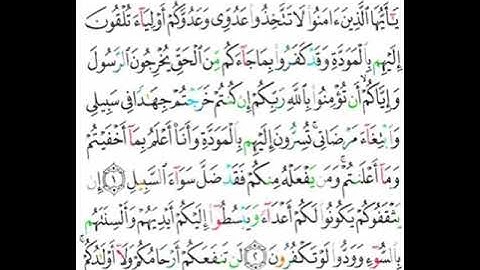 يَٰٓأَيُّهَا ٱلَّذِينَ ءَامَنُوا۟ لَا تَتَّخِذُوا۟ عَدُوِّى وَعَدُوَّكُمْ أَوْلِيَآءَ تُلْقُونَ
إِلَيْهِم بِٱلْمَوَدَّةِ وَقَدْ كَفَرُوا۟ بِمَا جَآءَكُم مِّنَ ٱلْحَقِّ يُخْرِجُونَ ٱلرَّسُولَ
وَإِيَّاكُمْ ۙ أَن تُؤْمِنُوا۟ بِٱللَّهِ رَبِّكُمْ إِن كُنتُمْ خَرَجْتُمْ جِهَٰدًا فِى سَبِيلِى
وَٱبْتِغَآءَ مَرْضَاتِى ۚ تُسِرُّونَ إِلَيْهِم بِٱلْمَوَدَّةِ وَأَنَا۠ أَعْلَمُ بِمَآ أَخْفَيْتُمْ
وَمَآ أَعْلَنتُمْ ۚ وَمَن يَفْعَلْهُ مِنكُمْ فَقَدْ ضَلَّ سَوَآءَ ٱلسَّبِيلِ ١ إِن
يَثْقَفُوكُمْ يَكُونُوا۟ لَكُمْ أَعْدَآءً وَيَبْسُطُوٓا۟ إِلَيْكُمْ أَيْدِيَهُمْ وَأَلْسِنَتَهُم
بِٱلسُّوٓءِ وَوَدُّوا۟ لَوْ تَكْفُرُونَ ٢ لَن تَنفَعَكُمْ أَرْحَامُكُمْ وَلَآ أَوْلَٰدُكُمْ ۚ